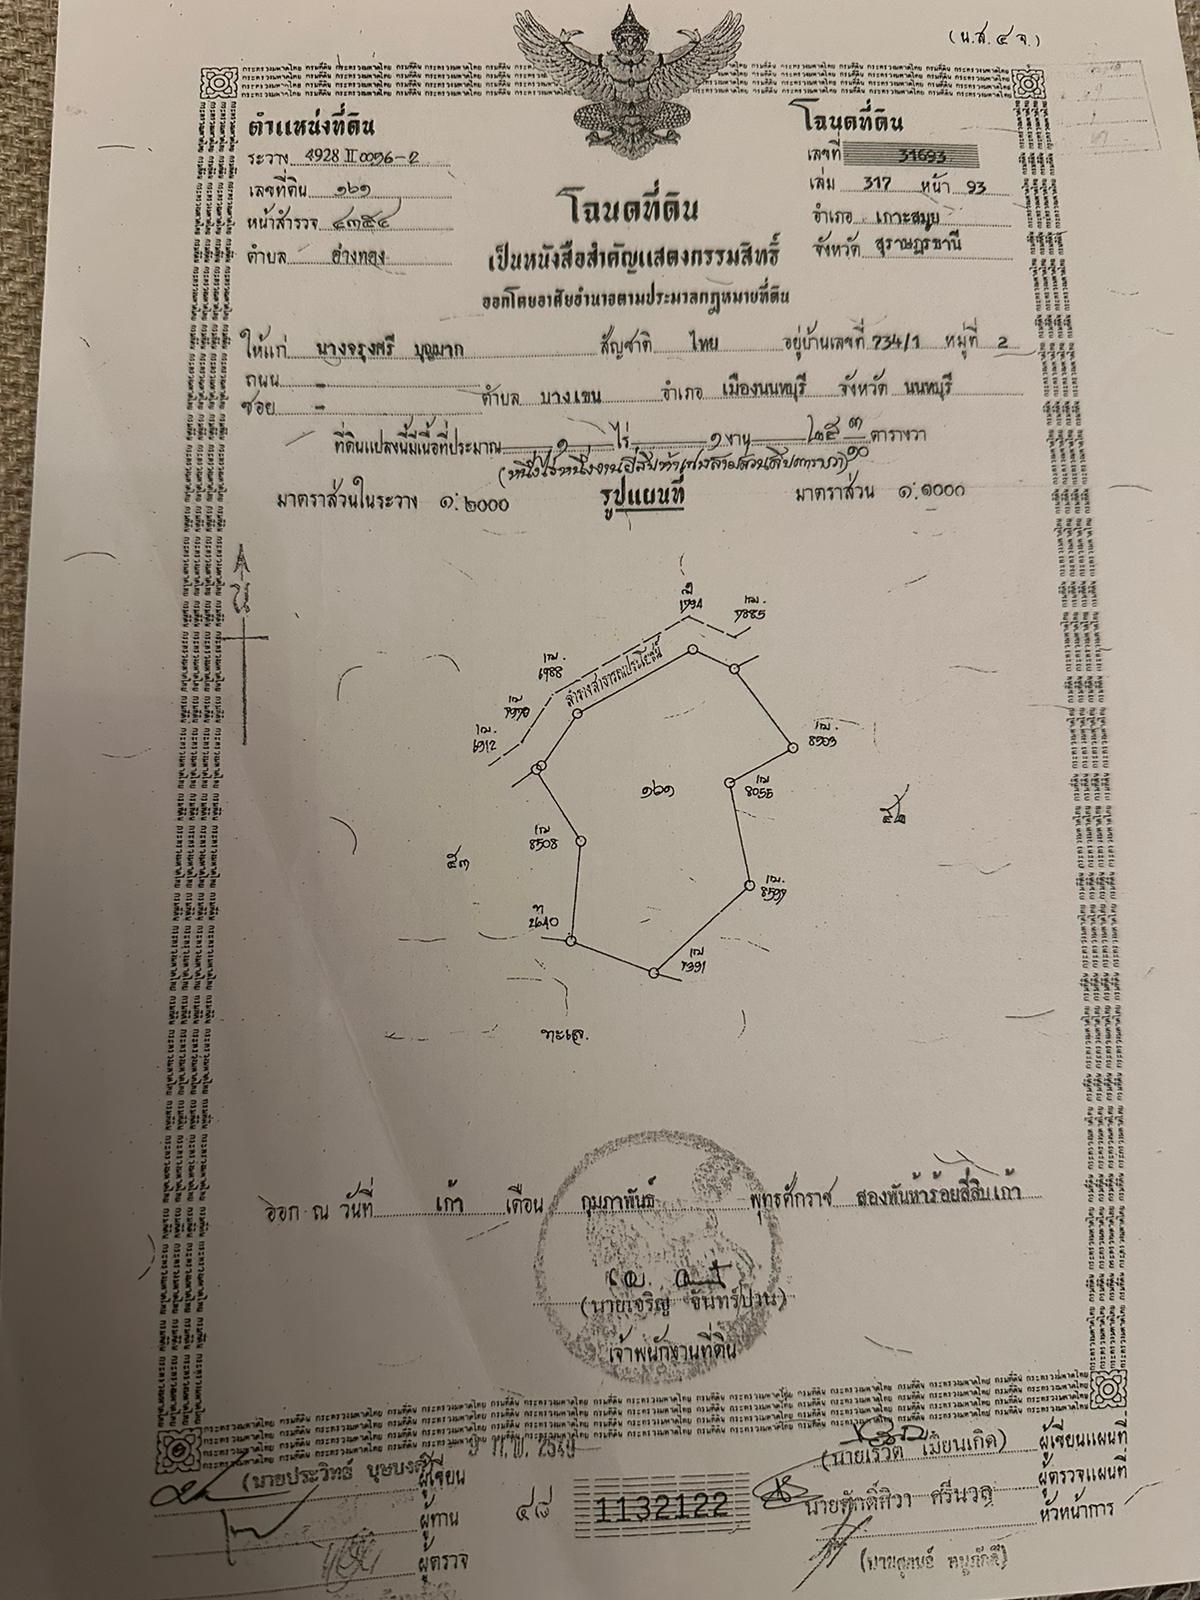 (น.ส. ๔ จ.)
ตำแหน่งที่ดิน
ระวาง 4928 II 0096-2
เลขที่ดิน ๑๖๑
หน้าสำรวจ ๔๓๕๔
ตำบล อ่างทอง
โฉนดที่ดิน
เลขที่ 31693
เล่ม 317 หน้า 93
อำเภอ เกาะสมุย
จังหวัด สุราษฎร์ธานี
โฉนดที่ดิน
เป็นหนังสือสำคัญแสดงกรรมสิทธิ์
ออกโดยอาศัยอำนาจตามประมวลกฎหมายที่ดิน
ให้แก่ นางจรุงศรี บุญมาก สัญชาติ ไทย อยู่บ้านเลขที่ 734/1 หมู่ที่ 2
ถนน -
ซอย - ตำบล บางเขน อำเภอ เมืองนนทบุรี จังหวัด นนทบุรี
ที่ดินแปลงนี้มีเนื้อที่ประมาณ ๑ ไร่ ๑ งาน ๒๕ ๓/๑๐ ตารางวา
(หนึ่งไร่หนึ่งงานยี่สิบห้าเศษสามส่วนสิบตารางวา)
มาตราส่วนในระวาง ๑:๒๐๐๐ รูปแผนที่ มาตราส่วน ๑:๑๐๐๐
น
ลำรางสาธารณประโยชน์
๑๖๑
8055
8508
๕๓
ทะเล
ออก ณ วันที่ เก้า เดือน กุมภาพันธ์ พุทธศักราช สองพันห้าร้อยสี่สิบเก้า
(นายเจริญ จันทร์ปาน)
เจ้าพนักงานที่ดิน
9 ก.พ. 2549
(นายประวิทธ์ บุษบงค์) ผู้เขียน
ผู้ทาน
ผู้ตรวจ
๔๘
1132122
(นายเรวัต เมียนเกิด) ผู้เขียนแผนที่
ผู้ตรวจแผนที่
นายศักดิ์ทิวา ศรีนวล หัวหน้าการ